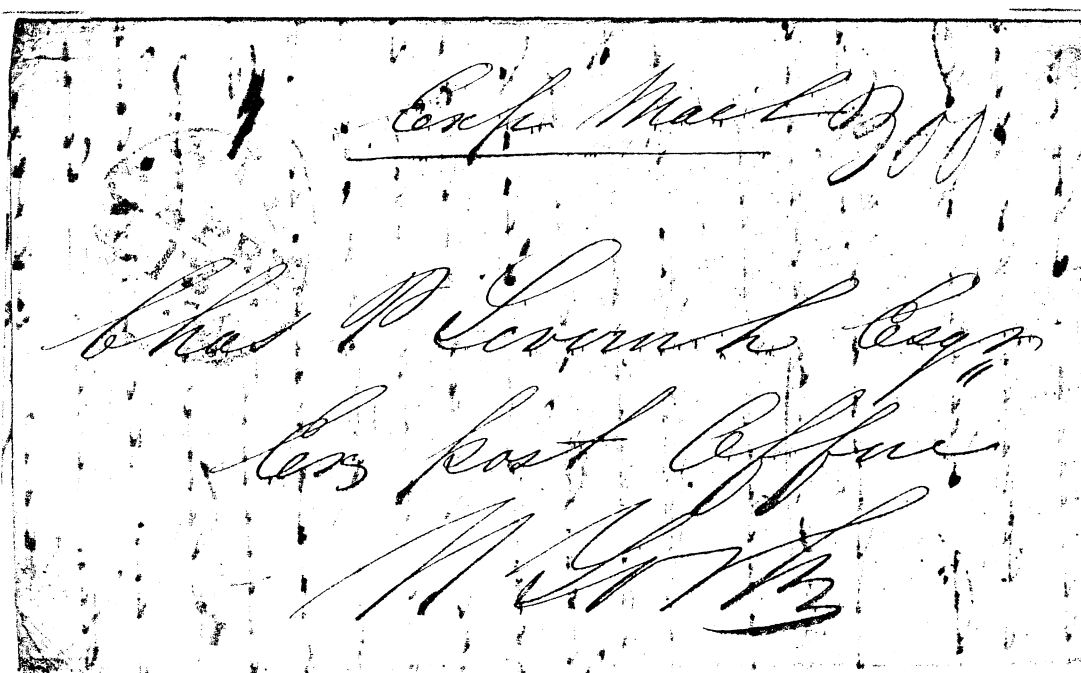 Exp Mail 300
Chas P Leverich Esqr
Ex post Office
N York